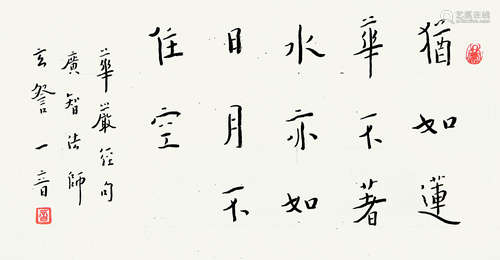 猶如蓮
華不著
水亦如
日月不
住空
華嚴經句
廣智法師
玄詧一音
艺典中国